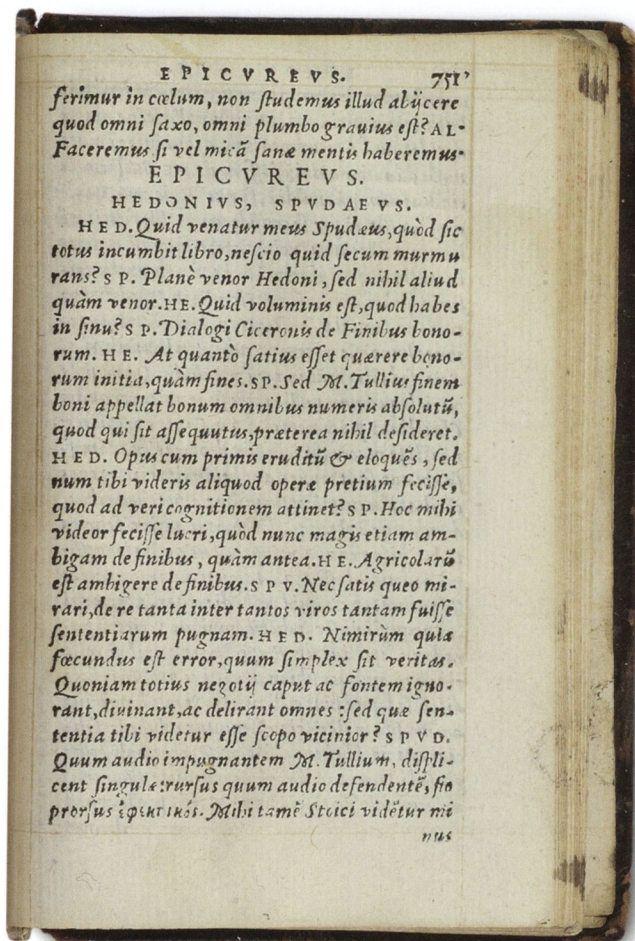 EPICVREVS. 751
ferimur in cœlum, non studemus illud abijcere
quod omni saxo, omni plumbo grauius est? AL.
Faceremus si vel micā sanæ mentis haberemus.
EPICVREVS.
HEDONIVS, SPVDAEVS.
HED. Quid venatur meus Spudæus, quòd sic
totus incumbit libro, nescio quid secum murmu
rans? SP. Planè venor Hedoni, sed nihil aliud
quàm venor. HE. Quid voluminis est, quod habes
in sinu? SP. Dialogi Ciceronis de Finibus bono-
rum. HE. At quantò satius esset quærere bono-
rum initia, quàm fines. SP. Sed M. Tullius finem
boni appellat bonum omnibus numeris absolutū,
quod qui sit assequutus, præterea nihil desideret.
HED. Opus cum primis eruditū & eloquēs, sed
num tibi videris aliquod operæ pretium fecisse,
quod ad veri cognitionem attinet? SP. Hoc mihi
videor fecisse lucri, quòd nunc magis etiam am-
bigam de finibus, quàm antea. HE. Agricolarū
est ambigere de finibus. SPV. Nec satis queo mi-
rari, de re tanta inter tantos viros tantam fuisse
sententiarum pugnam. HED. Nimirùm quia
fœcundus est error, quum simplex sit veritas.
Quoniam totius negotij caput ac fontem igno-
rant, diuinant, ac delirant omnes: sed quæ sen-
tentia tibi videtur esse scopo vicinior? SPVD.
Quum audio impugnantem M. Tullium, displi-
cent singulæ: rursus quum audio defendentē, fio
prorsus ἐφεκτικός. Mihi tamē Stoici vidētur mi
nus